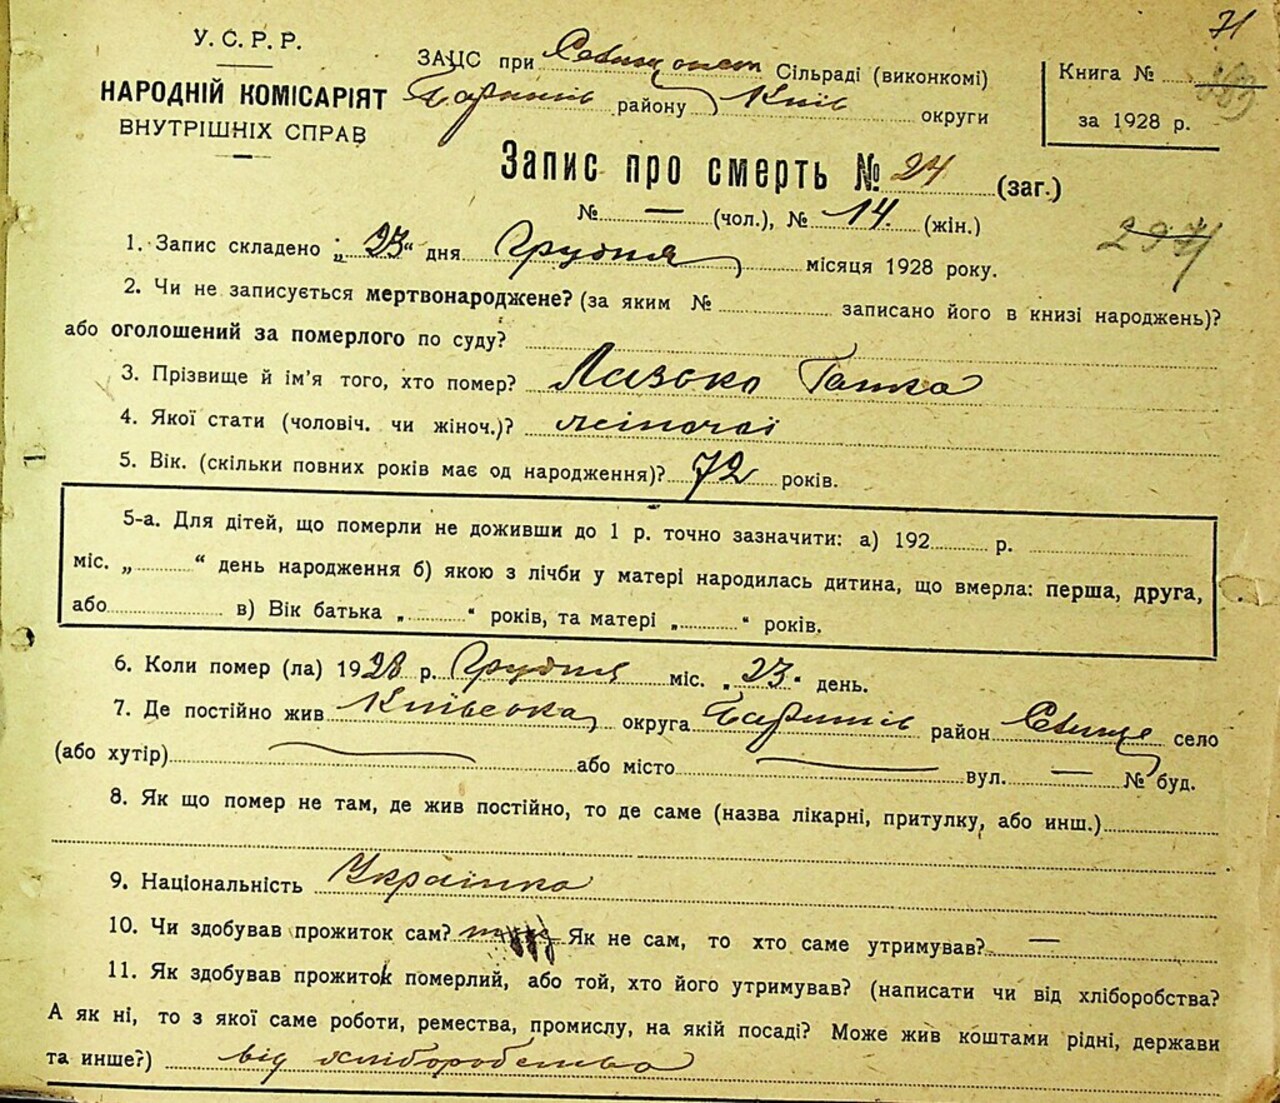 71
У. С. Р. Р.
НАРОДНІЙ КОМІСАРІЯТ
ВНУТРІШНІХ СПРАВ
ЗАЦС при Сільраді (виконкомі)
Баришів району Київ округи
Книга №
за 1928 р.
Запис про смерть № 24 (заг.)
№ — (чол.), № 14. (жін.)
2971
1. Запис складено „23“ дня Грудня місяця 1928 року.
2. Чи не записується мертвонароджене? (за яким № записано його в книзі народжень)?
або оголошений за померлого по суду?
3. Прізвище й ім'я того, хто помер? Лазько Гашка
4. Якої стати (чоловіч. чи жіноч.)? жіночої
5. Вік. (скільки повних років має од народження)? 72 років.
5-а. Для дітей, що померли не доживши до 1 р. точно зазначити: а) 192 р.
міс. „ “ день народження б) якою з лічби у матері народилась дитина, що вмерла: перша, друга,
або в) Вік батька „ “ років, та матері „ “ років.
6. Коли помер (ла) 1928 р. Грудня міс. „23“ день.
7. Де постійно жив Київська округа Баришів район Свище село
(або хутір) або місто вул. — № буд.
8. Як що помер не там, де жив постійно, то де саме (назва лікарні, притулку, або инш.)
9. Національність Українка
10. Чи здобував прожиток сам? Як не сам, то хто саме утримував? —
11. Як здобував прожиток померлий, або той, хто його утримував? (написати чи від хліборобства?
А як ні, то з якої саме роботи, ремества, промислу, на якій посаді? Може жив коштами рідні, держави
та инше?) від хліборобства